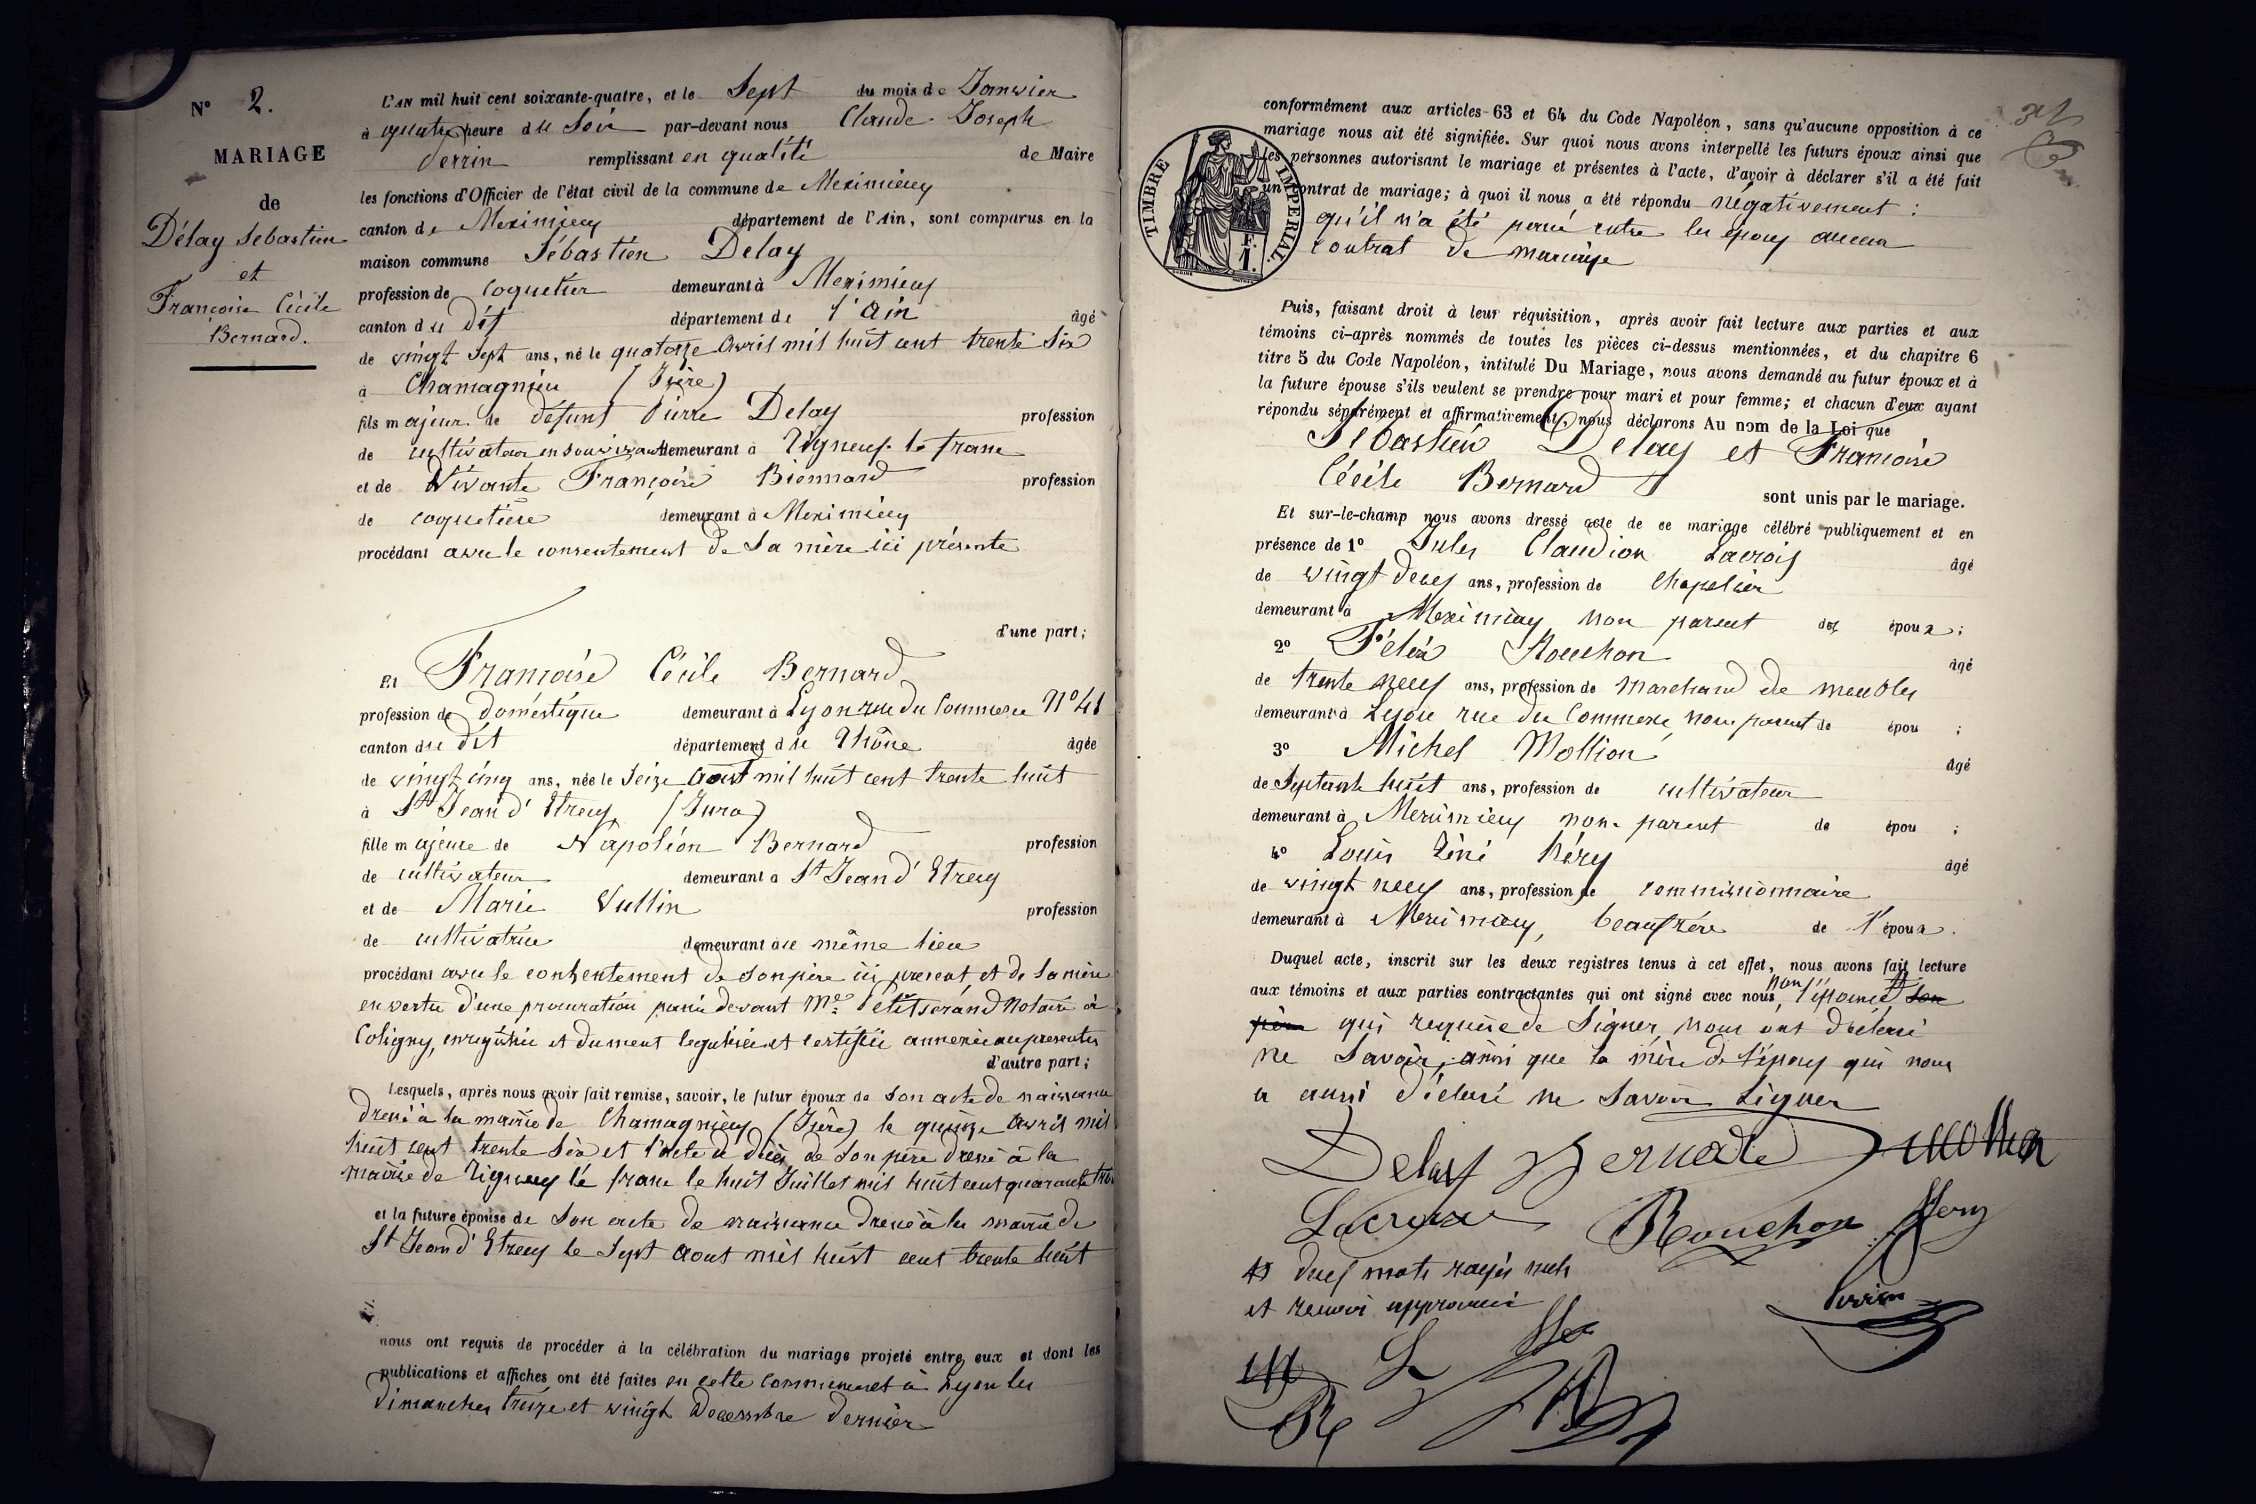 N° 2.
MARIAGE
de
Délay Sebastien
et
Françoise Cécile
Bernard.
L'AN mil huit cent soixante-quatre, et le Sept du mois de Janvier
à quatre heure du Soir par-devant nous Claude Joseph
Perrin remplissant en qualité de Maire
les fonctions d'Officier de l'état civil de la commune de Meximieux
canton de Meximieux département de l'Ain, sont comparus en la
maison commune Sébastien Delay
profession de coquetier demeurant à Meximieux
canton du dit département de l'Ain âgé
de vingt Sept ans, né le quatorze Avril mil huit cent trente Six
à Chamagnieu (Isère)
fils majeur de défunt Pierre Delay profession
de cultivateur en son vivant demeurant à Rigneux le franc
et de Vivante Françoise Bionnard profession
de coquetière demeurant à Meximieux
procédant avec le consentement de Sa mère ici présente
d'une part;
Et Françoise Cécile Bernard
profession de doméstique demeurant à Lyon rue du Commerce N° 41
canton du dit département du Rhône âgée
de vingt cinq ans, née le Seize Aout mil huit cent trente huit
à St Jean d'Etreux (Jura)
fille majeure de Napoléon Bernard profession
de cultivateur demeurant à St Jean d'Etreux
et de Marie Vullin profession
de cultivatrice demeurant au même lieu
procédant avec le consentement de Son père ici présent, et de Sa mère
en vertu d'une procuration passée devant Me Petitserand Notaire à
Coligny, enregistrée et dument légalisée et certifiée annexée au présentes
d'autre part;
Lesquels, après nous avoir fait remise, savoir, le futur époux de Son acte de naissance
dressé à la mairie de Chamagnieu (Isère) le quinze Avril mil
huit cent trente Six et l'acte de décès de Son père dressé à la
mairie de Rigneux le franc le huit Juillet mil huit cent quarante trois
et la future épouse de Son acte de naissance dressé à la mairie de
St Jean d'Etreux le Sept Aout mil huit cent trente huit
nous ont requis de procéder à la célébration du mariage projeté entre eux et dont les
publications et affiches ont été faites en cette commune et à Lyon les
dimanches treize et vingt Decembre dernier
conformément aux articles 63 et 64 du Code Napoléon, sans qu'aucune opposition à ce
mariage nous ait été signifiée. Sur quoi nous avons interpellé les futurs époux ainsi que
les personnes autorisant le mariage et présentes à l'acte, d'avoir à déclarer s'il a été fait
un contrat de mariage; à quoi il nous a été répondu négativement:
qu'il n'a été passé entre les époux aucun
contrat de mariage
TIMBRE IMPERIAL.
1 F.
Puis, faisant droit à leur réquisition, après avoir fait lecture aux parties et aux
témoins ci-après nommés de toutes les pièces ci-dessus mentionnées, et du chapitre 6
titre 5 du Code Napoléon, intitulé Du Mariage, nous avons demandé au futur époux et à
la future épouse s'ils veulent se prendre pour mari et pour femme; et chacun d'eux ayant
répondu séparément et affirmativement, nous déclarons Au nom de la Loi que
Sébastien Delay et Françoise
Cécile Bernard sont unis par le mariage.
Et sur-le-champ nous avons dressé acte de ce mariage célébré publiquement et en
présence de 1° Jules Claudion Lacroix âgé
de vingt deux ans, profession de Chapelier
demeurant à Meximieux non parent des époux;
2° Félix Rouchon âgé
de trente neuf ans, profession de Marchand de meubles
demeurant à Lyon rue du Commerce, non parent de épou ;
3° Michel Mollion âgé
de Septante huit ans, profession de cultivateur
demeurant à Meximieux non parent de épou ;
4° Louis Réné Héry âgé
de vingt neuf ans, profession de commissionnaire
demeurant à Meximieux, beaufrère de l'époux.
Duquel acte, inscrit sur les deux registres tenus à cet effet, nous avons fait lecture
aux témoins et aux parties contractantes qui ont signé avec nous, non l'épouse son
père qui requise de Signer, nous ont déclaré
ne Savoir, ainsi que la mère de l'époux qui nous
a aussi déclaré ne Savoir Signer
Delay Bernard Mollion
Lacroix Rouchon Hery
deux mots rayés nuls
et renvoi approuvés
Perrin